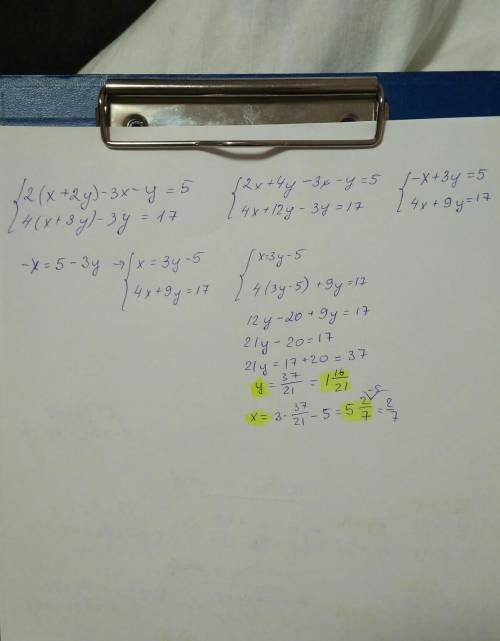 {2(x+2y)-3x-y=5
4(x+3y)-3y=17
{2x+4y-3x-y=5
4x+12y-3y=17
{-x+3y=5
4x+9y=17
-x=5-3y → {x=3y-5
4x+9y=17
{x=3y-5
4(3y-5)+9y=17
12y-20+9y=17
21y-20=17
21y=17+20=37
y=37/21=1 16/21
x=3·37/21-5=5 2/7=2/7
-5